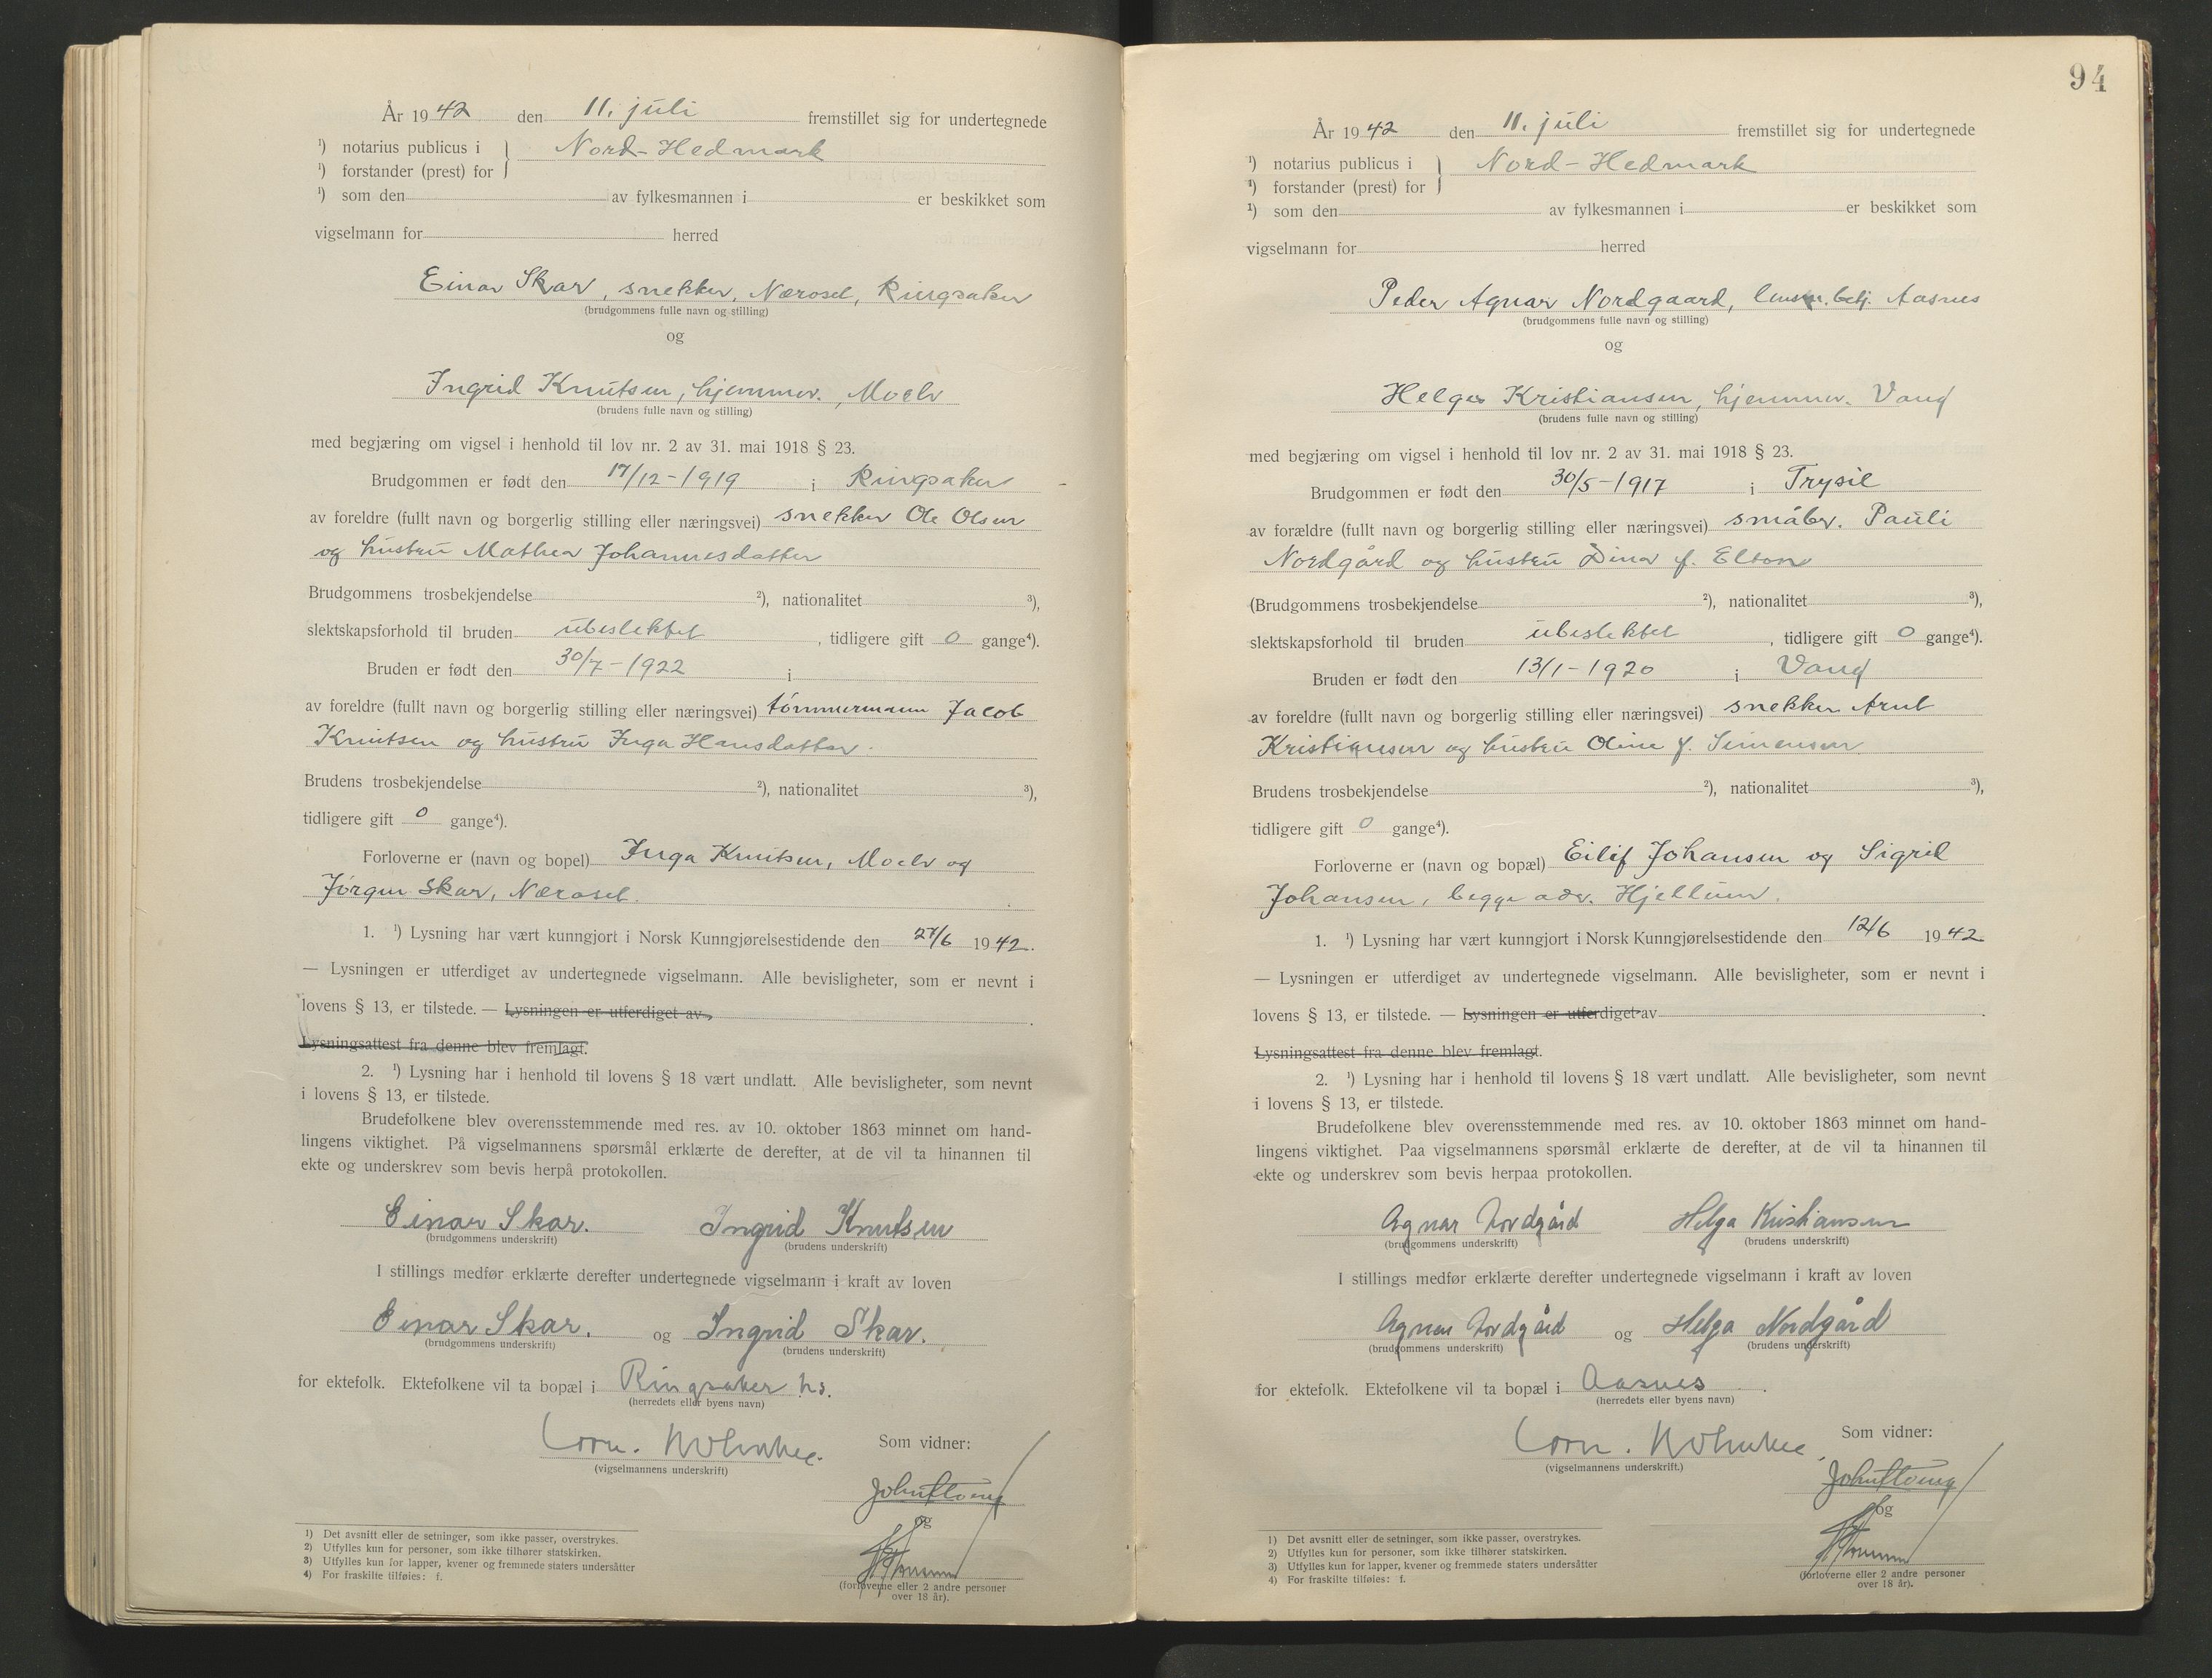 År 1942 den 11. juli fremstillet sig for undertegnede
¹) notarius publicus i } Nord-Hedmark
¹) forstander (prest) for
¹) som den av fylkesmannen i er beskikket som
vigselmann for herred
Einar Skar, snekker, Nærosel, Ringsaker
(brudgommens fulle navn og stilling)
og
Ingrid Knutsen, hjemmev., Moelv
(brudens fulle navn og stilling)
med begjæring om vigsel i henhold til lov nr. 2 av 31. mai 1918 § 23.
Brudgommen er født den 17/12-1919 i Ringsaker
av foreldre (fullt navn og borgerlig stilling eller næringsvei) snekker Ole Olsen
og hustru Mathea Johannesdatter
Brudgommens trosbekjendelse ²), nationalitet ³),
slektskapsforhold til bruden ubeslektet, tidligere gift 0 gange⁴).
Bruden er født den 30/7-1922 i
av foreldre (fullt navn og borgerlig stilling eller næringsvei) tømmermann Jacob
Knutsen og hustru Inga Hansdatter.
Brudens trosbekjendelse ²), nationalitet ³),
tidligere gift 0 gange⁴).
Forloverne er (navn og bopel) Inga Knutsen, Moelv og
Jørgen Skar, Nærosel.
1. ¹) Lysning har vært kunngjort i Norsk Kunngjørelsestidende den 27/6 1942.
— Lysningen er utferdiget av undertegnede vigselmann. Alle bevisligheter, som er nevnt i
lovens § 13, er tilstede. — Lysningen er utferdiget av
Lysningsattest fra denne blev fremlagt.
2. ¹) Lysning har i henhold til lovens § 18 vært undlatt. Alle bevisligheter, som nevnt
i lovens § 13, er tilstede.
Brudefolkene blev overensstemmende med res. av 10. oktober 1863 minnet om hand-
lingens viktighet. På vigselmannens spørsmål erklærte de derefter, at de vil ta hinannen til
ekte og underskrev som bevis herpå protokollen.
Einar Skar. Ingrid Knutsen
(brudgommens underskrift) (brudens underskrift)
I stillings medfør erklærte derefter undertegnede vigselmann i kraft av loven
Einar Skar. og Ingrid Skar.
(brudgommens underskrift) (brudens underskrift)
for ektefolk. Ektefolkene vil ta bopæl i Ringsaker hd.
(herredets eller byens navn)
Corn. Som vidner:
(vigselmannens underskrift)
og
(forloverne eller 2 andre personer
over 18 år).
1) Det avsnitt eller de setninger, som ikke passer, overstrykes.
2) Utfylles kun for personer, som ikke tilhører statskirken.
3) Utfylles kun for lapper, kvener og fremmede staters undersåtter
4) For fraskilte tilføies: f.
94
År 1942 den 11. juli fremstillet sig for undertegnede
¹) notarius publicus i } Nord-Hedmark
¹) forstander (prest) for
¹) som den av fylkesmannen i er beskikket som
vigselmann for herred
Peder Agnar Nordgaard, lensm. betj. Aasnes
(brudgommens fulle navn og stilling)
og
Helga Kristiansen, hjemmev. Vang
(brudens fulle navn og stilling)
med begjæring om vigsel i henhold til lov nr. 2 av 31. mai 1918 § 23.
Brudgommen er født den 30/5-1917 i Trysil
av forældre (fullt navn og borgerlig stilling eller næringsvei) småbr. Pauli
Nordgård og hustru Dina f. Elton
(Brudgommens trosbekjendelse ²), nationalitet ³),
slektskapsforhold til bruden ubeslektet, tidligere gift 0 gange⁴).
Bruden er født den 13/1-1920 i Vang
av foreldre (fullt navn og borgerlig stilling eller næringsvei) snekker Arnt
Kristiansen og hustru Oline f. Simensen
Brudens trosbekjendelse ²), nationalitet ³),
tidligere gift 0 gange⁴).
Forloverne er (navn og bopæl) Eilif Johansen og Sigrid
Johansen, begge adr. Hjellum.
1. ¹) Lysning har vært kunngjort i Norsk Kunngjørelsestidende den 12/6 1942
— Lysningen er utferdiget av undertegnede vigselmann. Alle bevisligheter, som er nevnt i
lovens § 13, er tilstede. — Lysningen er utferdiget av
Lysningsattest fra denne blev fremlagt.
2. ¹) Lysning har i henhold til lovens § 18 vært undlatt. Alle bevisligheter, som nevnt
i lovens § 13, er tilstede.
Brudefolkene blev overensstemmende med res. av 10. oktober 1863 minnet om hand-
lingens viktighet. Paa vigselmannens spørsmål erklærte de derefter, at de vil ta hinannen til
ekte og underskrev som bevis herpaa protokollen.
Agnar Nordgård Helga Kristiansen
(brudgommens underskrift) (brudens underskrift)
I stillings medfør erklærte derefter undertegnede vigselmann i kraft av loven
Agnar Nordgård og Helga Nordgård
(brudgommens underskrift) (brudens underskrift)
for ektefolk. Ektefolkene vil ta bopæl i Aasnes.
(herredets eller byens navn)
Corn. Som vidner:
(vigselmannens underskrift.)
og
(forloverne eller 2 andre personer
over 18 år).
1) Det avsnitt eller de setninger, som ikke passer, overstrykes.
2) Utfylles kun for personer, som ikke tilhører statskirken.
3) Utfylles kun for lapper, kvener og fremmede staters undersåtter
4) For fraskilte tilføies: f.